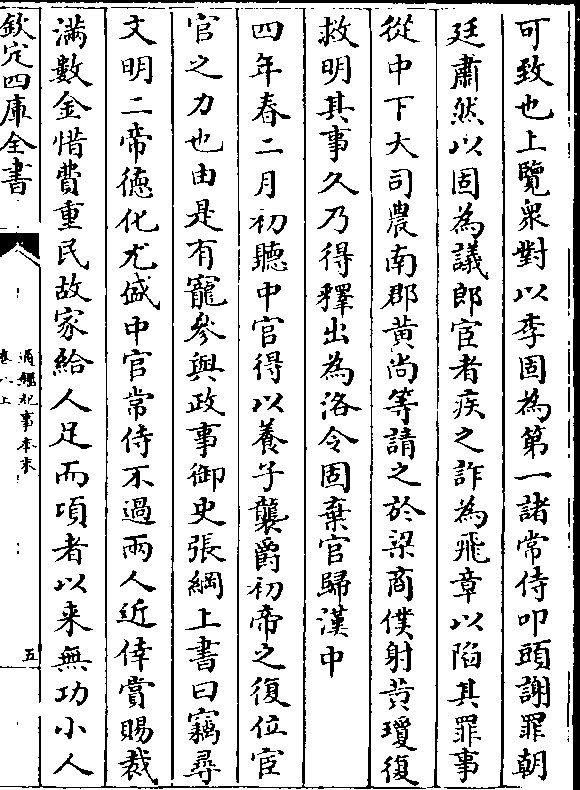 可致也上覽衆對以李固為第一諸常侍叩頭謝罪朝
廷肅然以固為議郎宦者疾之詐為飛章以陷其罪事
從中下大司農南郡黃尚等請之於梁商僕射黃瓊復
救明其事久乃得釋出為洛令固棄官歸漢中
四年春二月初聽中官得以養子襲爵初帝之復位宦
官之力也由是有寵參與政事御史張綱上書曰竊尋
文明二帝德化尤盛中官常侍不過兩人近倖賞賜裁
滿數金惜費重民故家給人足而項者以来無功小人
欽定四庫全書
通鑑紀事本末
卷八上
五